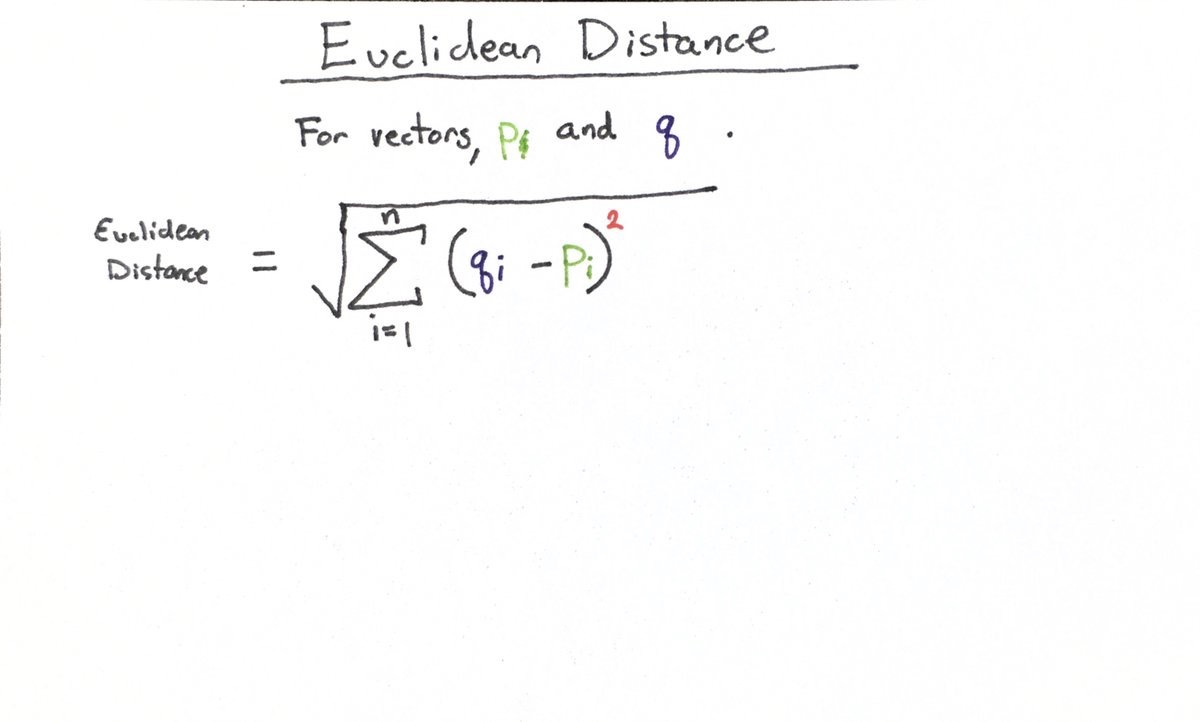 Euclidean Distance
For vectors, p and q .
Euclidean Distance = √ n Σ i=1 (qi - pi)²